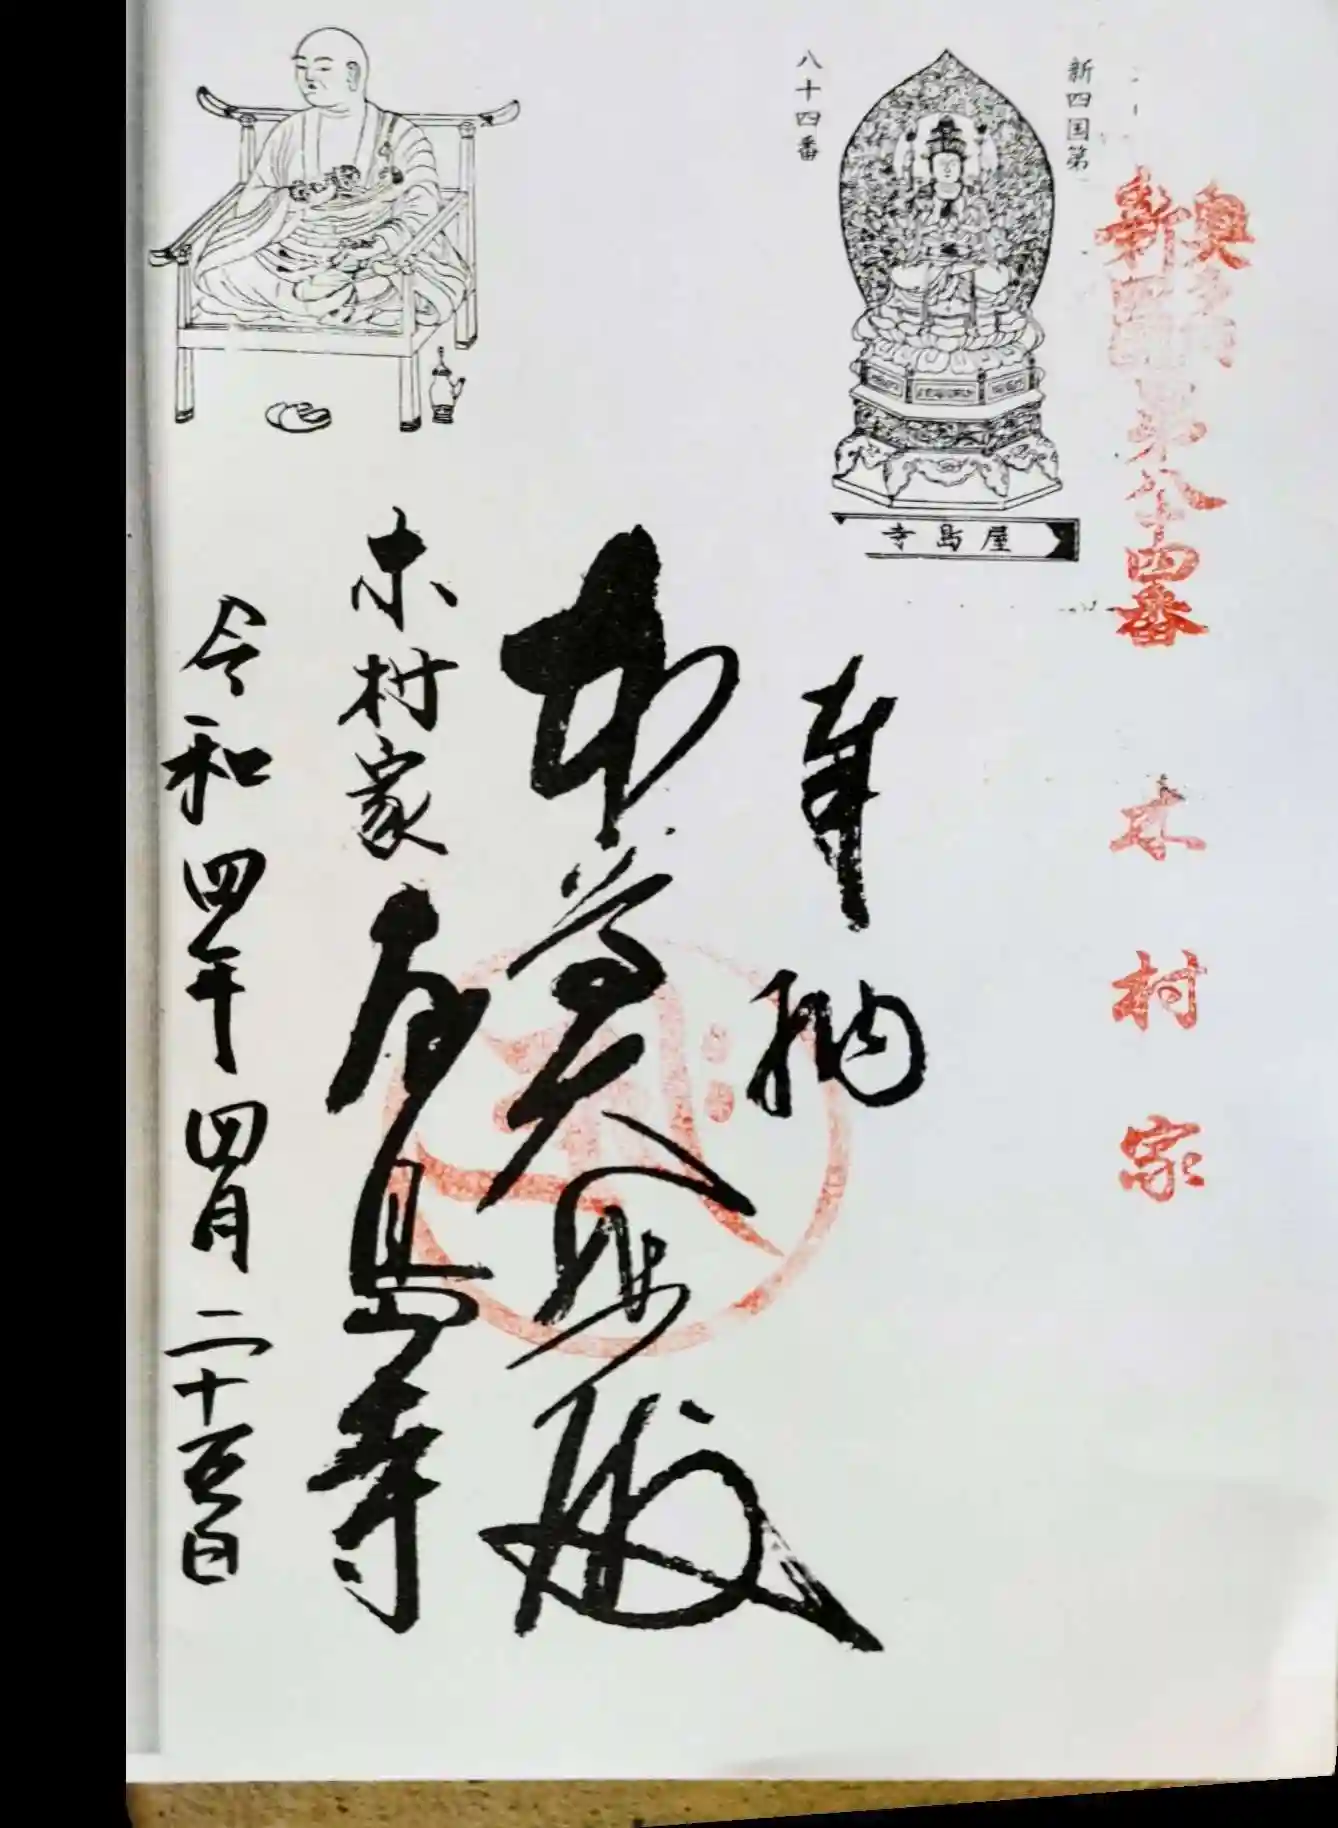 新四国第八十四番
木村家
新四国第
八十四番
屋島寺
奉納
本尊大悲殿
木村家 屋島寺
令和四年四月二十五日